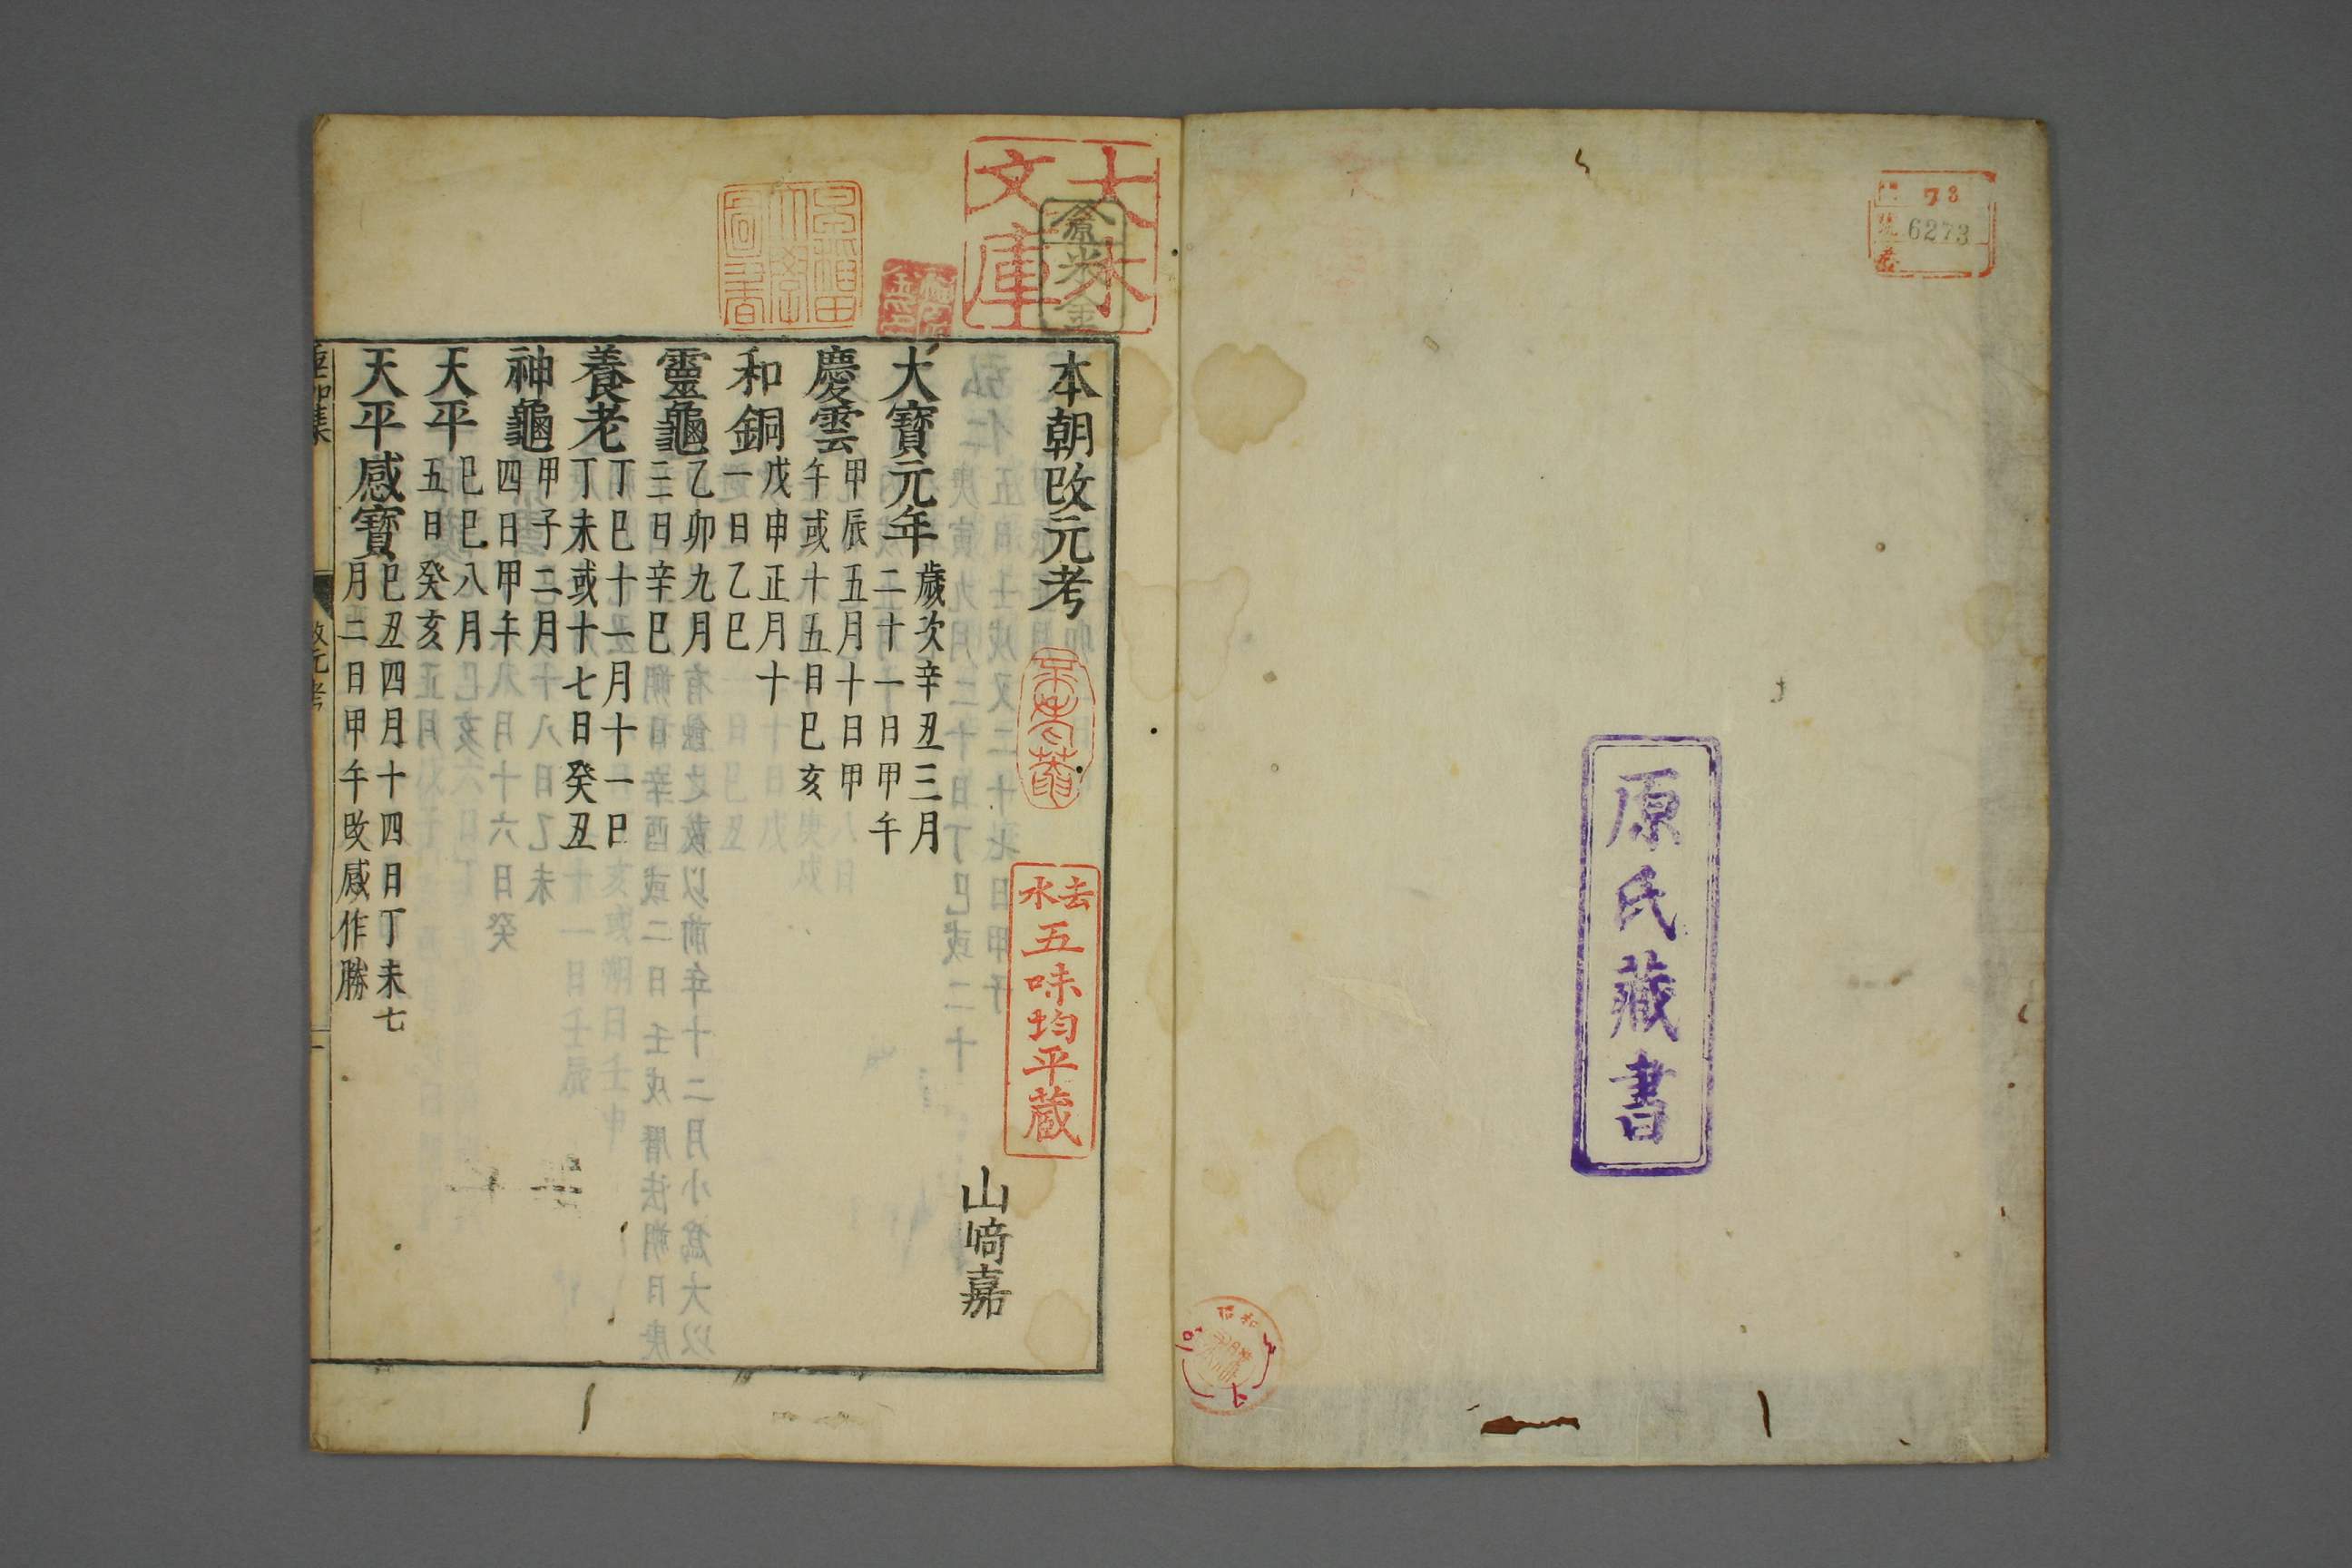 73
6273
原氏藏書
大木文庫
早稲田大學圖書
本朝改元考
去水
五味均平蔵
山﨑嘉
大寶元年
歳次辛丑三月
二十一日甲午
慶雲
甲辰五月十日甲
午或十五日巳亥
和銅
戊申正月十
一日乙巳
靈龜
乙卯九月
三日辛巳
養老
丁巳十一月十一日
丁未或十七日癸丑
神龜
甲子二月
四日甲午
天平
巳巳八月
五日癸亥
天平感寶
巳丑四月十四日丁未七
月二日甲午改感作勝
改元考
一